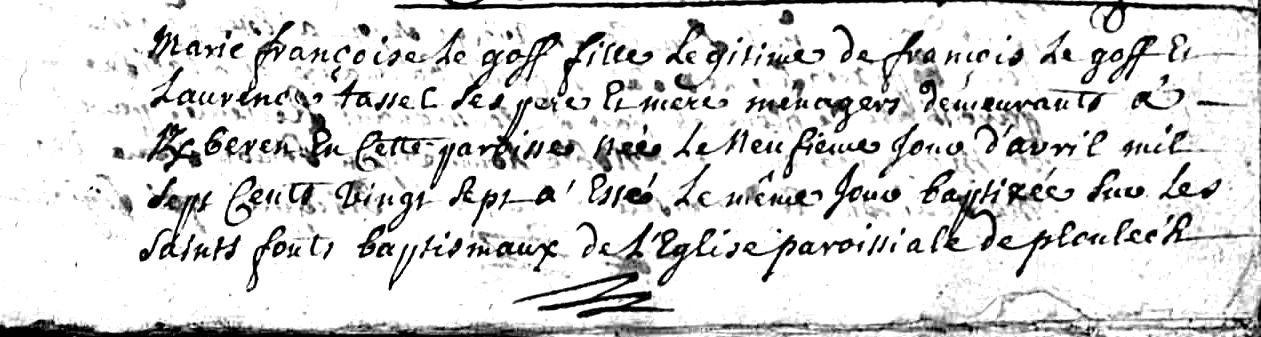 Marie françoise Le goff fille Legitime de françois Le goff Et
Laurence tassel Ses pere Et mere menagers demeurants à
K/beren En Cette parroisse née Le Neufieme Jour d'avril mil
Sept Cents Vingt Sept a Esté Le même Jour baptizée Sur Les
Saints fonts baptismaux de L'Eglise paroissiale de ploulech